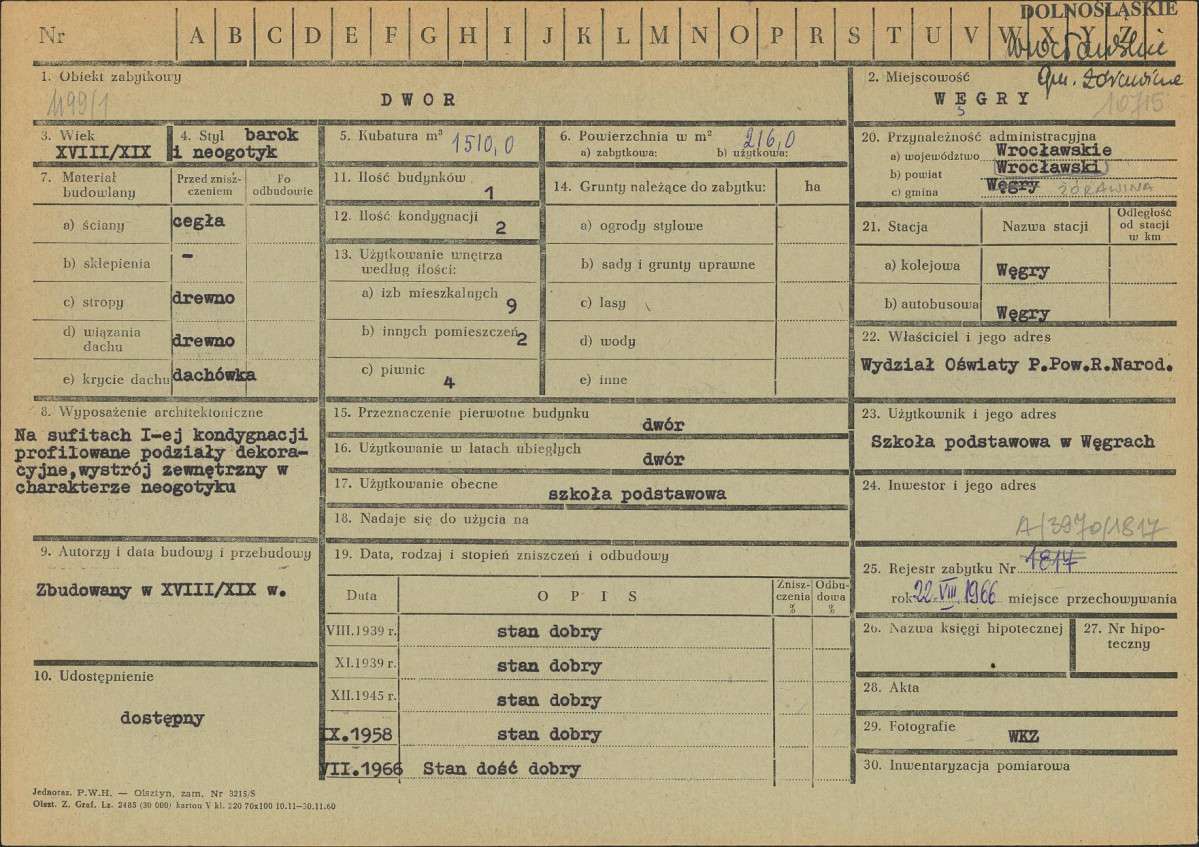 DOLNOŚLĄSKIE
Nr A B C D E F G H I J K L M N O P R S T U V W X Y Z
Wrocławskie
gm. Żórawina
1. Obiekt zabytkowy
1499/1
DWOR
2. Miejscowość
WĘGRY
10715
3. Wiek
XVIII/XIX
4. Styl barok
i neogotyk
5. Kubatura m³ 1510,0
6. Powierzchnia w m² 216,0
a) zabytkowa: b) użytkowa:
20. Przynależność administracyjna
a) województwo Wrocławskie
b) powiat Wrocławski
c) gmina Węgry ŻÓRAWINA
7. Materiał budowlany
Przed znisz-
czeniem
Po
odbudowie
a) ściany cegła
b) sklepienia -
c) stropy drewno
d) wiązania
dachu drewno
e) krycie dachu dachówka
11. Ilość budynków 1
12. Ilość kondygnacji 2
13. Użytkowanie wnętrza
według ilości:
a) izb mieszkalnych 9
b) innych pomieszczeń 2
c) piwnic 4
14. Grunty należące do zabytku: ha
a) ogrody stylowe
b) sady i grunty uprawne
c) lasy
d) wody
e) inne
21. Stacja Nazwa stacji
Odległość
od stacji
w km
a) kolejowa Węgry
b) autobusowa Węgry
22. Właściciel i jego adres
Wydział Oświaty P.Pow.R.Narod.
8. Wyposażenie architektoniczne
Na sufitach I-ej kondygnacji
profilowane podziały dekora-
cyjne,wystrój zewnętrzny w
charakterze neogotyku
15. Przeznaczenie pierwotne budynku
dwór
16. Użytkowanie w latach ubiegłych
dwór
17. Użytkowanie obecne
szkoła podstawowa
18. Nadaje się do użycia na
23. Użytkownik i jego adres
Szkoła podstawowa w Węgrach
24. Inwestor i jego adres
A/3970/1817
9. Autorzy i data budowy i przebudowy
Zbudowany w XVIII/XIX w.
19. Data, rodzaj i stopień zniszczeń i odbudowy
Data OPIS
Znisz-
czenia
%
Odbu-
dowa
%
VIII.1939 r. stan dobry
XI.1939 r. stan dobry
XII.1945 r. stan dobry
IX.1958 stan dobry
VII.1966 Stan dość dobry
25. Rejestr zabytku Nr 1817
rok 22.VIII.1966 miejsce przechowywania
26. Nazwa księgi hipotecznej
27. Nr hipo-
teczny
10. Udostępnienie
dostępny
28. Akta
29. Fotografie
WKZ
30. Inwentaryzacja pomiarowa
Jednoraz. P.W.H. — Olsztyn, zam. Nr 3215/S
Olszt. Z. Graf. Lz. 2485 (30 000) karton V kl. 220 70x100 10.11—30.11.60